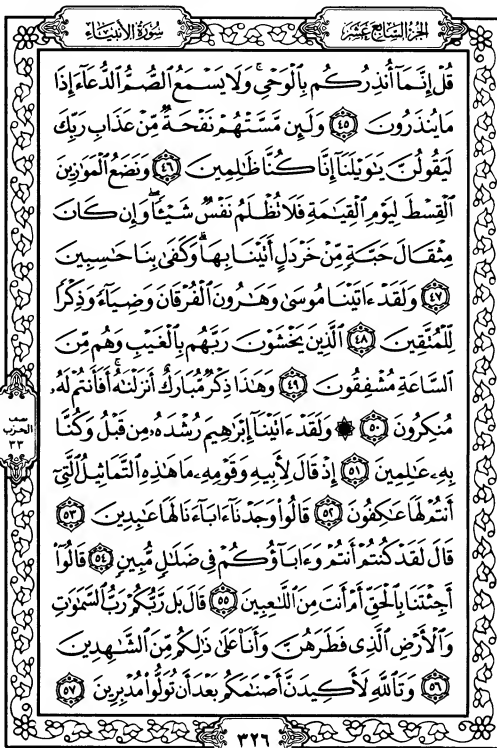 سُورَةُ الأَنبيَاء
الجُزءُ السَّابِعَ عَشَرَ
قُلْ إِنَّمَآ أُنذِرُكُم بِٱلْوَحْىِ ۚ وَلَا يَسْمَعُ ٱلصُّمُّ ٱلدُّعَآءَ إِذَا
مَا يُنذَرُونَ ٤٥ وَلَئِن مَّسَّتْهُمْ نَفْحَةٌ مِّنْ عَذَابِ رَبِّكَ
لَيَقُولُنَّ يَٰوَيْلَنَآ إِنَّا كُنَّا ظَٰلِمِينَ ٤٦ وَنَضَعُ ٱلْمَوَٰزِينَ
ٱلْقِسْطَ لِيَوْمِ ٱلْقِيَٰمَةِ فَلَا تُظْلَمُ نَفْسٌ شَيْـًٔا ۖ وَإِن كَانَ
مِثْقَالَ حَبَّةٍ مِّنْ خَرْدَلٍ أَتَيْنَا بِهَا ۗ وَكَفَىٰ بِنَا حَٰسِبِينَ
٤٧ وَلَقَدْ ءَاتَيْنَا مُوسَىٰ وَهَٰرُونَ ٱلْفُرْقَانَ وَضِيَآءً وَذِكْرًا
لِّلْمُتَّقِينَ ٤٨ ٱلَّذِينَ يَخْشَوْنَ رَبَّهُم بِٱلْغَيْبِ وَهُم مِّنَ
ٱلسَّاعَةِ مُشْفِقُونَ ٤٩ وَهَٰذَا ذِكْرٌ مُّبَارَكٌ أَنزَلْنَٰهُ ۚ أَفَأَنتُمْ لَهُۥ
مُنكِرُونَ ٥٠ ۞ وَلَقَدْ ءَاتَيْنَآ إِبْرَٰهِيمَ رُشْدَهُۥ مِن قَبْلُ وَكُنَّا
بِهِۦ عَٰلِمِينَ ٥١ إِذْ قَالَ لِأَبِيهِ وَقَوْمِهِۦ مَا هَٰذِهِ ٱلتَّمَاثِيلُ ٱلَّتِىٓ
أَنتُمْ لَهَا عَٰكِفُونَ ٥٢ قَالُوا۟ وَجَدْنَآ ءَابَآءَنَا لَهَا عَٰبِدِينَ ٥٣
قَالَ لَقَدْ كُنتُمْ أَنتُمْ وَءَابَآؤُكُمْ فِى ضَلَٰلٍ مُّبِينٍ ٥٤ قَالُوٓا۟
أَجِئْتَنَا بِٱلْحَقِّ أَمْ أَنتَ مِنَ ٱللَّٰعِبِينَ ٥٥ قَالَ بَل رَّبُّكُمْ رَبُّ ٱلسَّمَٰوَٰتِ
وَٱلْأَرْضِ ٱلَّذِى فَطَرَهُنَّ وَأَنَا۠ عَلَىٰ ذَٰلِكُم مِّنَ ٱلشَّٰهِدِينَ
٥٦ وَتَٱللَّهِ لَأَكِيدَنَّ أَصْنَٰمَكُم بَعْدَ أَن تُوَلُّوا۟ مُدْبِرِينَ ٥٧
نصف
الحزب
٣٣
٣٢٦